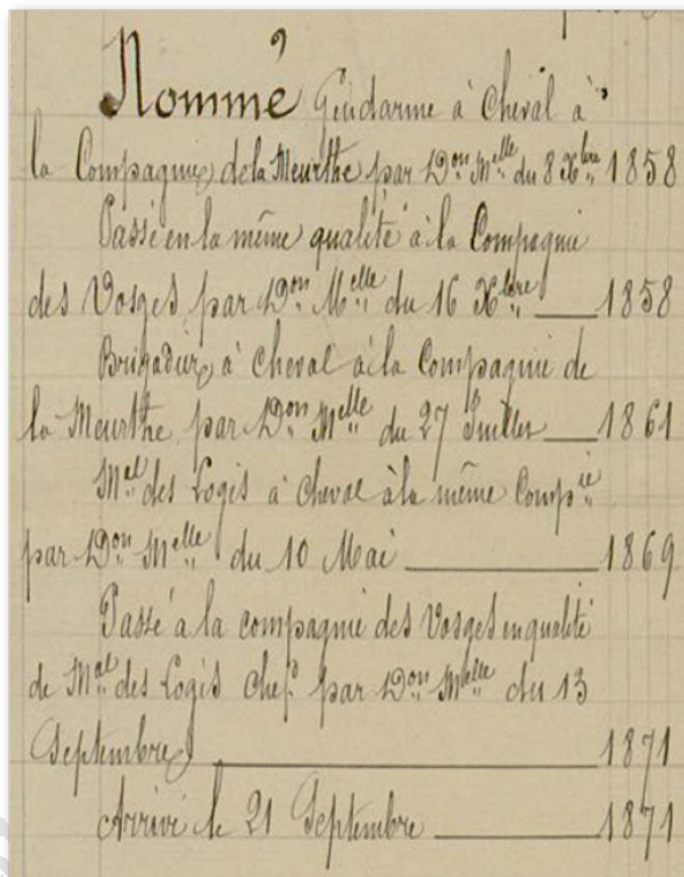 Nommé Gendarme à Cheval à
la Compagnie de la Meurthe par Don Melle du 8 Xbre 1858
Passé en la même qualité à la Compagnie
des Vosges par Don Melle du 16 Xbre 1858
Brigadier à cheval à la Compagnie de
la Meurthe par Don Melle du 27 Juillet 1861
Mal des Logis à cheval à la même Compie
par Don Melle du 10 Mai 1869
Passé à la compagnie des Vosges en qualité
de Mal des Logis chef par Don Melle du 13
Septembre 1871
Arrivé le 21 Septembre 1871